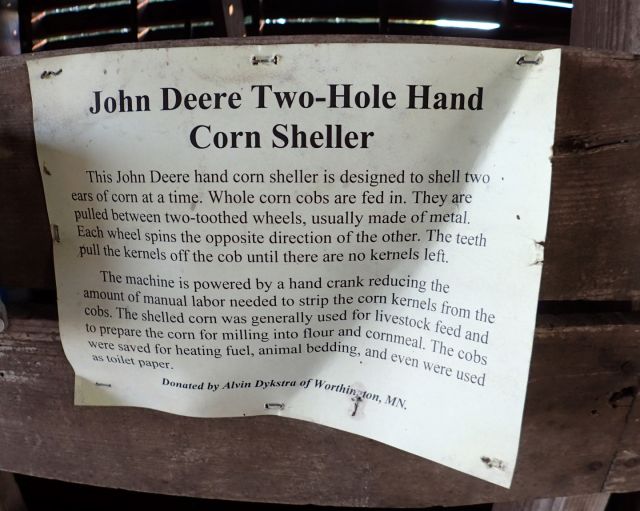 John Deere Two-Hole Hand
Corn Sheller
This John Deere hand corn sheller is designed to shell two
ears of corn at a time. Whole corn cobs are fed in. They are
pulled between two-toothed wheels, usually made of metal.
Each wheel spins the opposite direction of the other. The teeth
pull the kernels off the cob until there are no kernels left.
The machine is powered by a hand crank reducing the
amount of manual labor needed to strip the corn kernels from the
cobs. The shelled corn was generally used for livestock feed and
to prepare the corn for milling into flour and cornmeal. The cobs
were saved for heating fuel, animal bedding, and even were used
as toilet paper.
Donated by Alvin Dykstra of Worthington, MN.